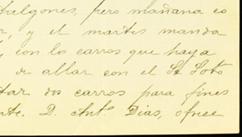 elgones, pero mañana es
, y el martes manda
, con lo carros que haya
de ablar con el Sr Soto
tar dos carros para fines
Att. D. Antº Dias, ofrec